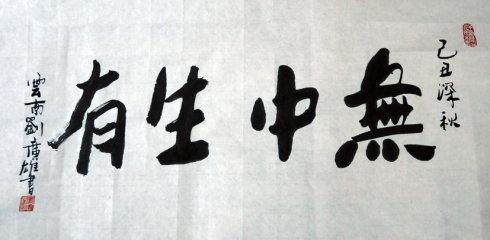 己丑深秋
無中生有
雲南劉廣雄書